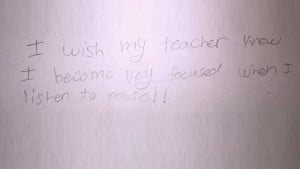 I wish my teacher knew
I become very focused when I
listen to music!!